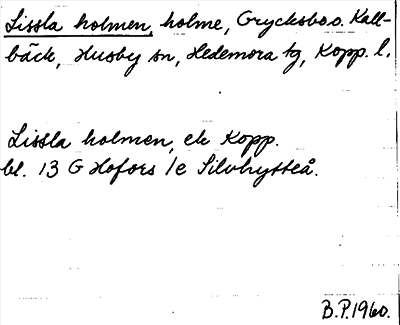 Lissla holmen, holme, Grycksbo o. Kall-
bäck, Husby sn, Hedemora tg, Kopp. l.
Lissla holmen, ek Kopp.
bl. 13 G Hofors /c Silvhytteå.
B.P. 1960.